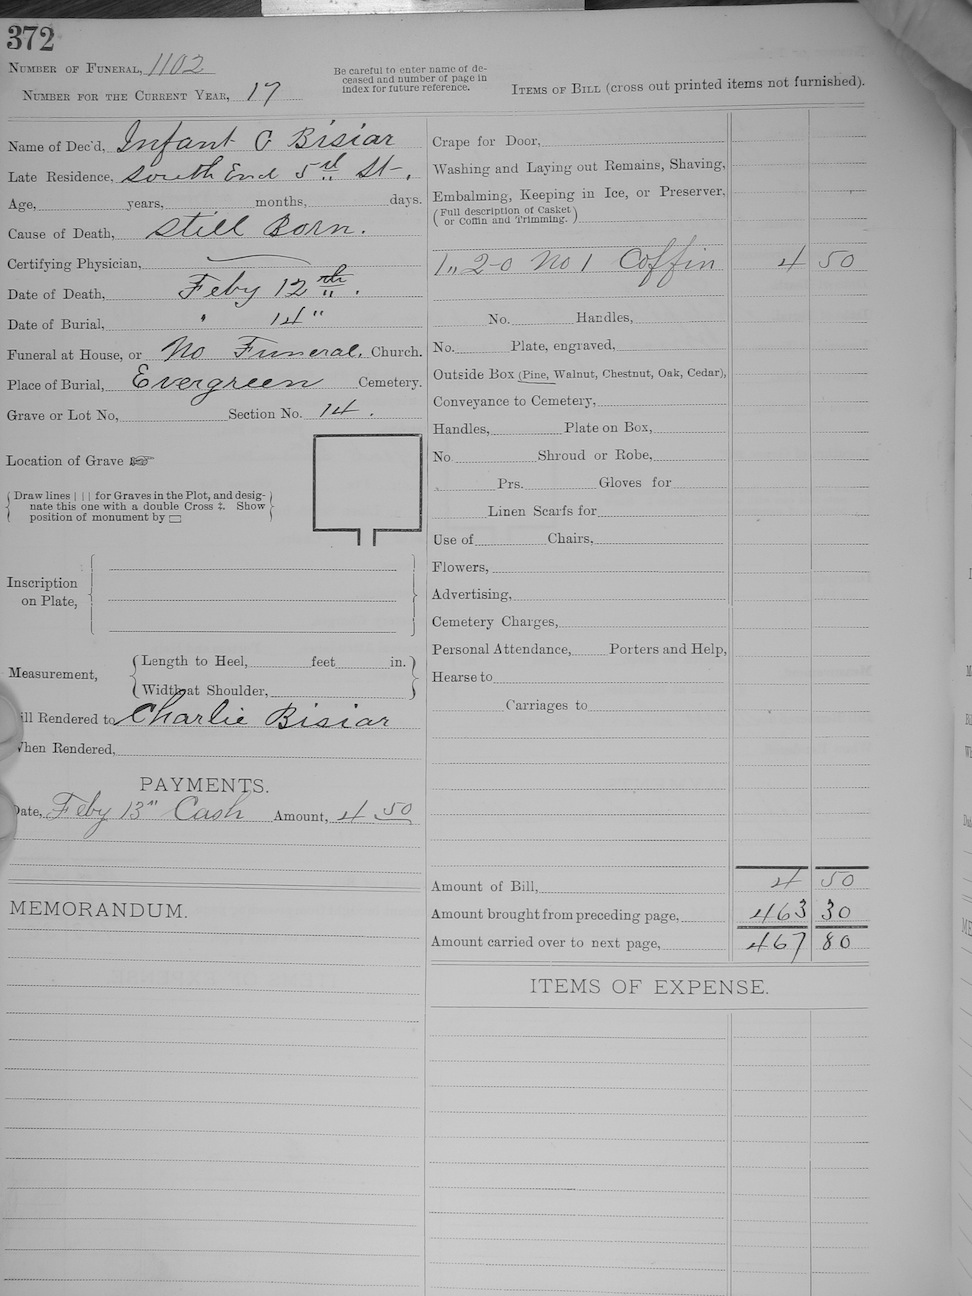 372
NUMBER OF FUNERAL, 1102
NUMBER FOR THE CURRENT YEAR, 17
Be careful to enter name of de-
ceased and number of page in
index for future reference.
ITEMS OF BILL (cross out printed items not furnished).
Name of Dec'd, Infant C Bisiar
Late Residence, South End 5th St.
Age, years, months, days.
Cause of Death, Still Born.
Certifying Physician,
Date of Death, Feby 12th.
Date of Burial, " 14"
Funeral at House, or No Funeral, Church.
Place of Burial, Evergreen Cemetery.
Grave or Lot No, Section No. 14.
Location of Grave ☞
Draw lines | | | for Graves in the Plot, and desig-
nate this one with a double Cross ‡. Show
position of monument by ▭
Inscription
on Plate,
Measurement,
Length to Heel, feet in.
Width at Shoulder,
ill Rendered to Charlie Bisiar
When Rendered,
PAYMENTS.
Date, Feby 13" Cash Amount, 4 50
MEMORANDUM.
Crape for Door,
Washing and Laying out Remains, Shaving,
Embalming, Keeping in Ice, or Preserver,
(Full description of Casket
or Coffin and Trimming.)
1,, 2-0 No 1 Coffin 4 50
No. Handles,
No. Plate, engraved,
Outside Box (Pine, Walnut, Chestnut, Oak, Cedar),
Conveyance to Cemetery,
Handles, Plate on Box,
No. Shroud or Robe,
Prs. Gloves for
Linen Scarfs for
Use of Chairs,
Flowers,
Advertising,
Cemetery Charges,
Personal Attendance, Porters and Help,
Hearse to
Carriages to
Amount of Bill, 4 50
Amount brought from preceding page, 463 30
Amount carried over to next page, 467 80
ITEMS OF EXPENSE.